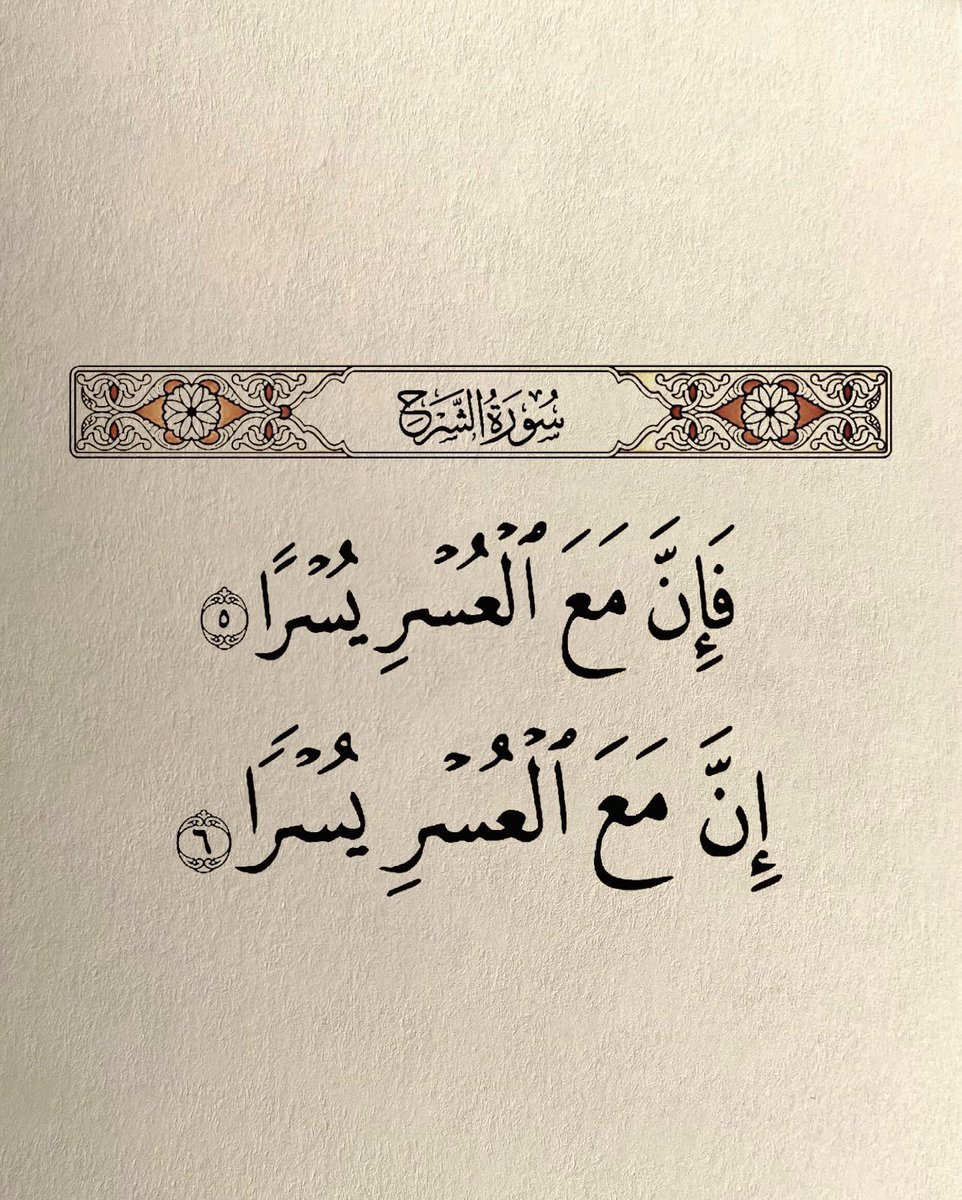 سُورَةُ الشَّرْحِ
فَإِنَّ مَعَ ٱلْعُسْرِ يُسْرًا ٥
إِنَّ مَعَ ٱلْعُسْرِ يُسْرَا ٦